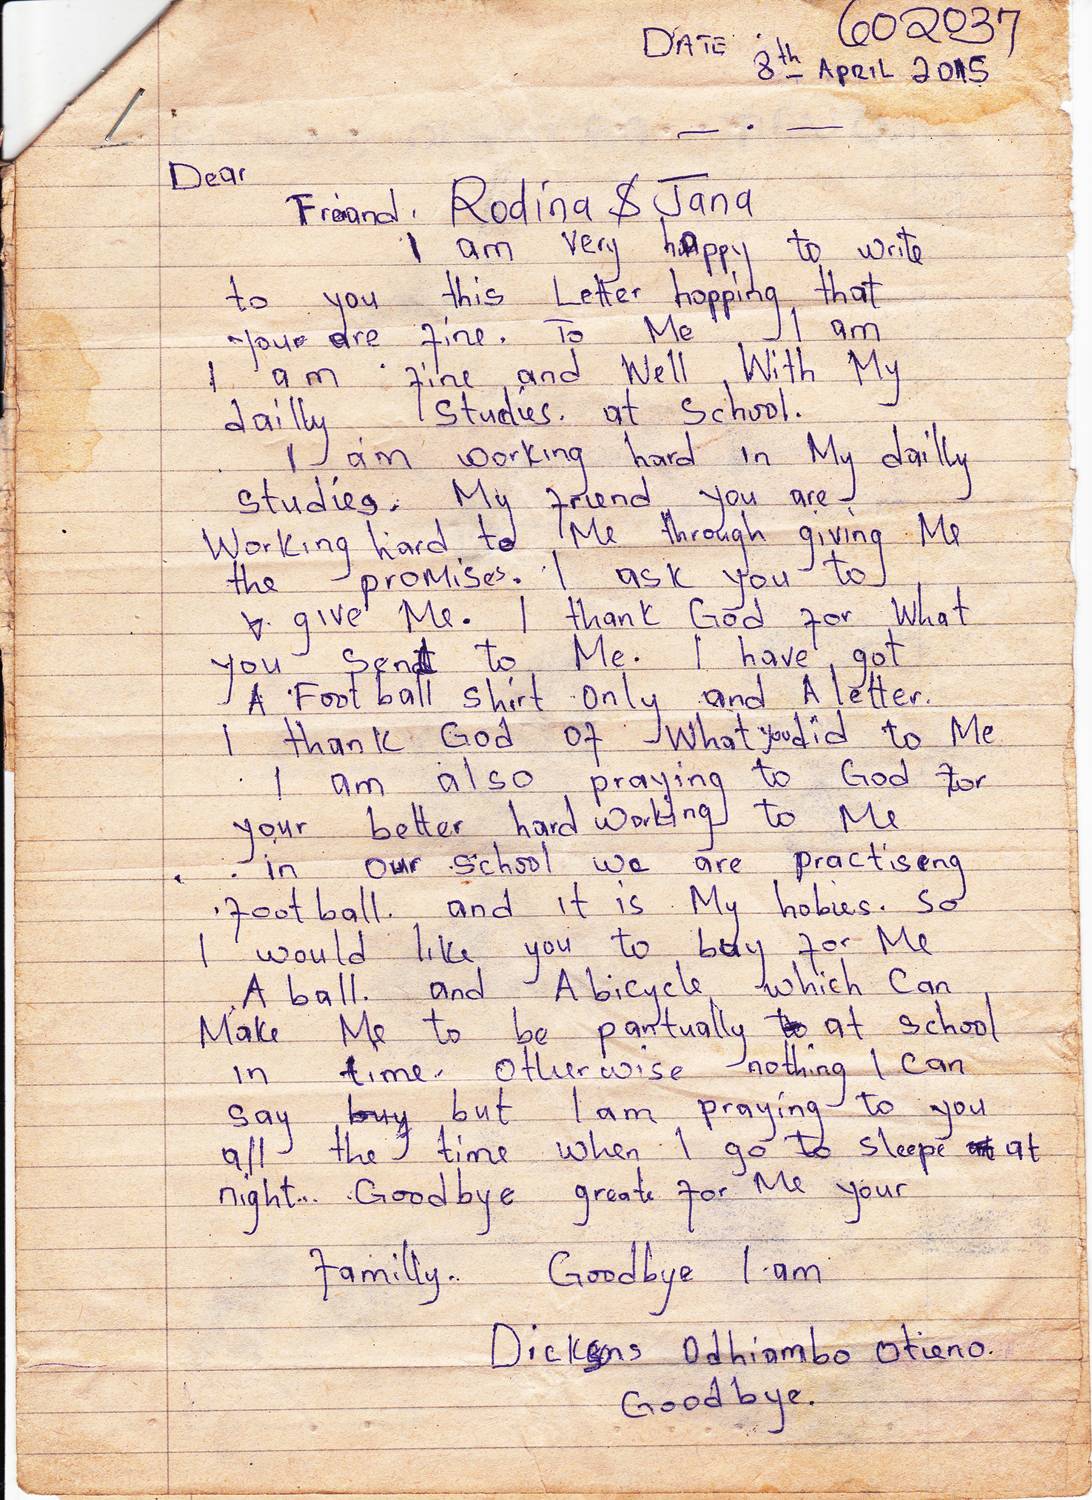 602037
DATE : 8th APRIL 2015
Dear
Friand. Rodina & Jana
I am very happy to write
to you this Letter hopping that
your are fine. To Me I am
I am fine and Well With My
dailly studies. at School.
I am working hard in My dailly
studies. My friend you are
Working hard to Me through giving Me
the promises. I ask you to
give Me. I thank God for What
you sent to Me. I have got
A Foot ball shirt only and A letter.
I thank God of What you did to Me
I am also praying to God for
your better hard working to Me
in our school we are practiseng
football. and it is My hobies. So
I would like you to buy for Me
A ball. and A bicycle which Can
Make Me to be pantually to at school
in time. Otherwise nothing I Can
say buy but I am praying to you
all the time when I go to sleepe at at
night... Goodbye greate for Me your
familly.. Goodbye I am
Dickens Odhiambo Otieno.
Goodbye.